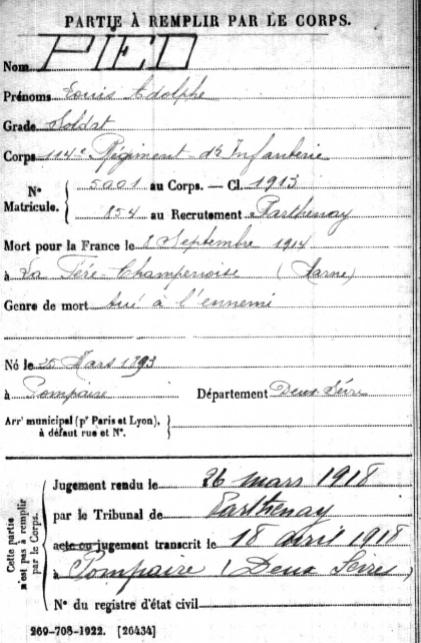 PARTIE À REMPLIR PAR LE CORPS.
Nom PIED
Prénoms Louis Adolphe
Grade Soldat
Corps 114e Régiment d'Infanterie
N° Matricule. { 5001 au Corps. — Cl. 1913
854 au Recrutement Parthenay
Mort pour la France le 8 Septembre 1914
à La Fére-Champenoise (Marne)
Genre de mort tué à l'ennemi
Né le 25 Mars 1893
à Pompaire Département Deux Sèvre
Arrt municipal (pr Paris et Lyon), à défaut rue et N°. {
Cette partie n'est pas à remplir par le Corps.
Jugement rendu le 26 mars 1918
par le Tribunal de Parthenay
acte ou jugement transcrit le 18 avril 1918
à Pompaire (Deux Sèvres)
N° du registre d'état civil
269-708-1922. [26434]